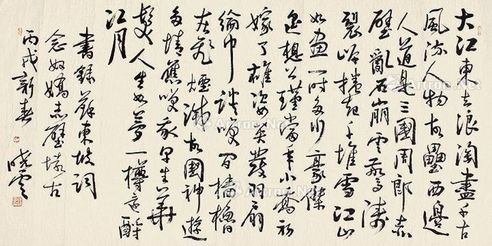 大江東去浪淘盡千古
風流人物故壘西邊
人道是三國周郎赤
壁亂石崩雲驚濤
裂岸捲起千堆雪江山
如畫一時多少豪傑
遙想公瑾當年小喬初
嫁了雄姿英發羽扇
綸巾談笑間檣櫓
灰飛煙滅故國神遊
多情應笑我早生華
髮人生如夢一樽還酹
江月
書錄蘇東坡詞
念奴嬌赤壁懷古
丙戌新春 曉雲